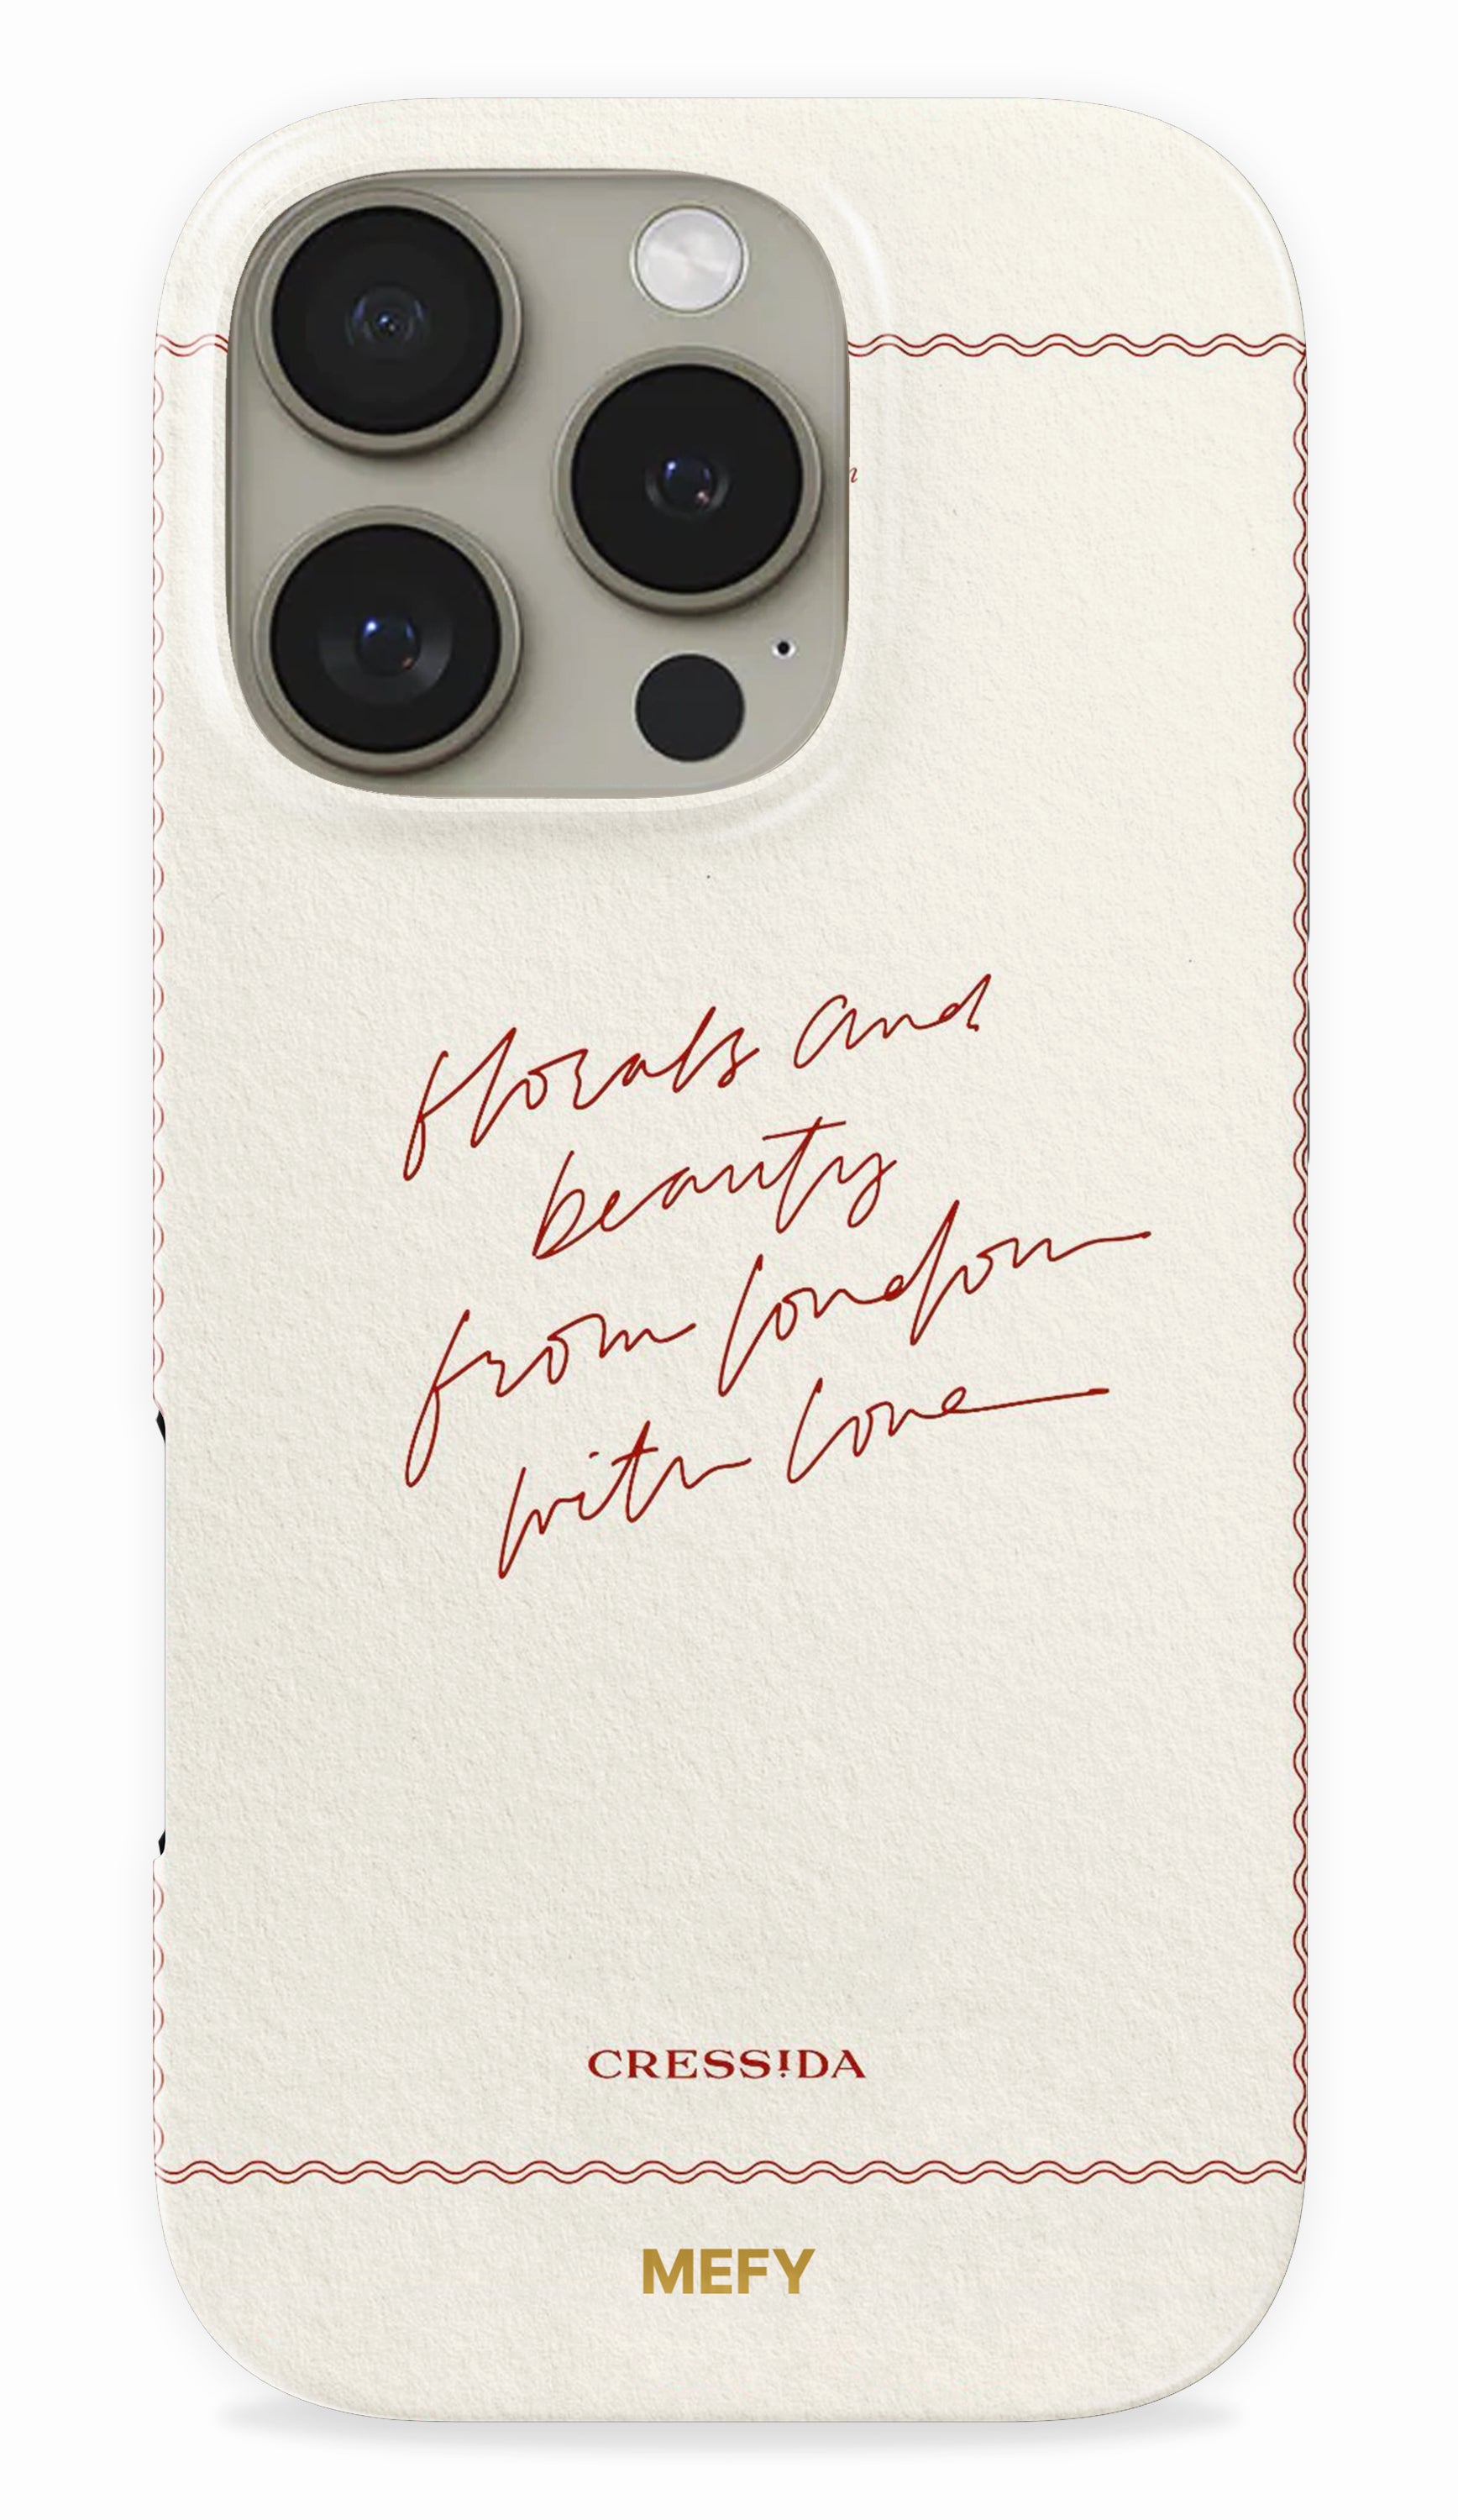 florals and
beauty
from london
with love
CRESSIDA
MEFY